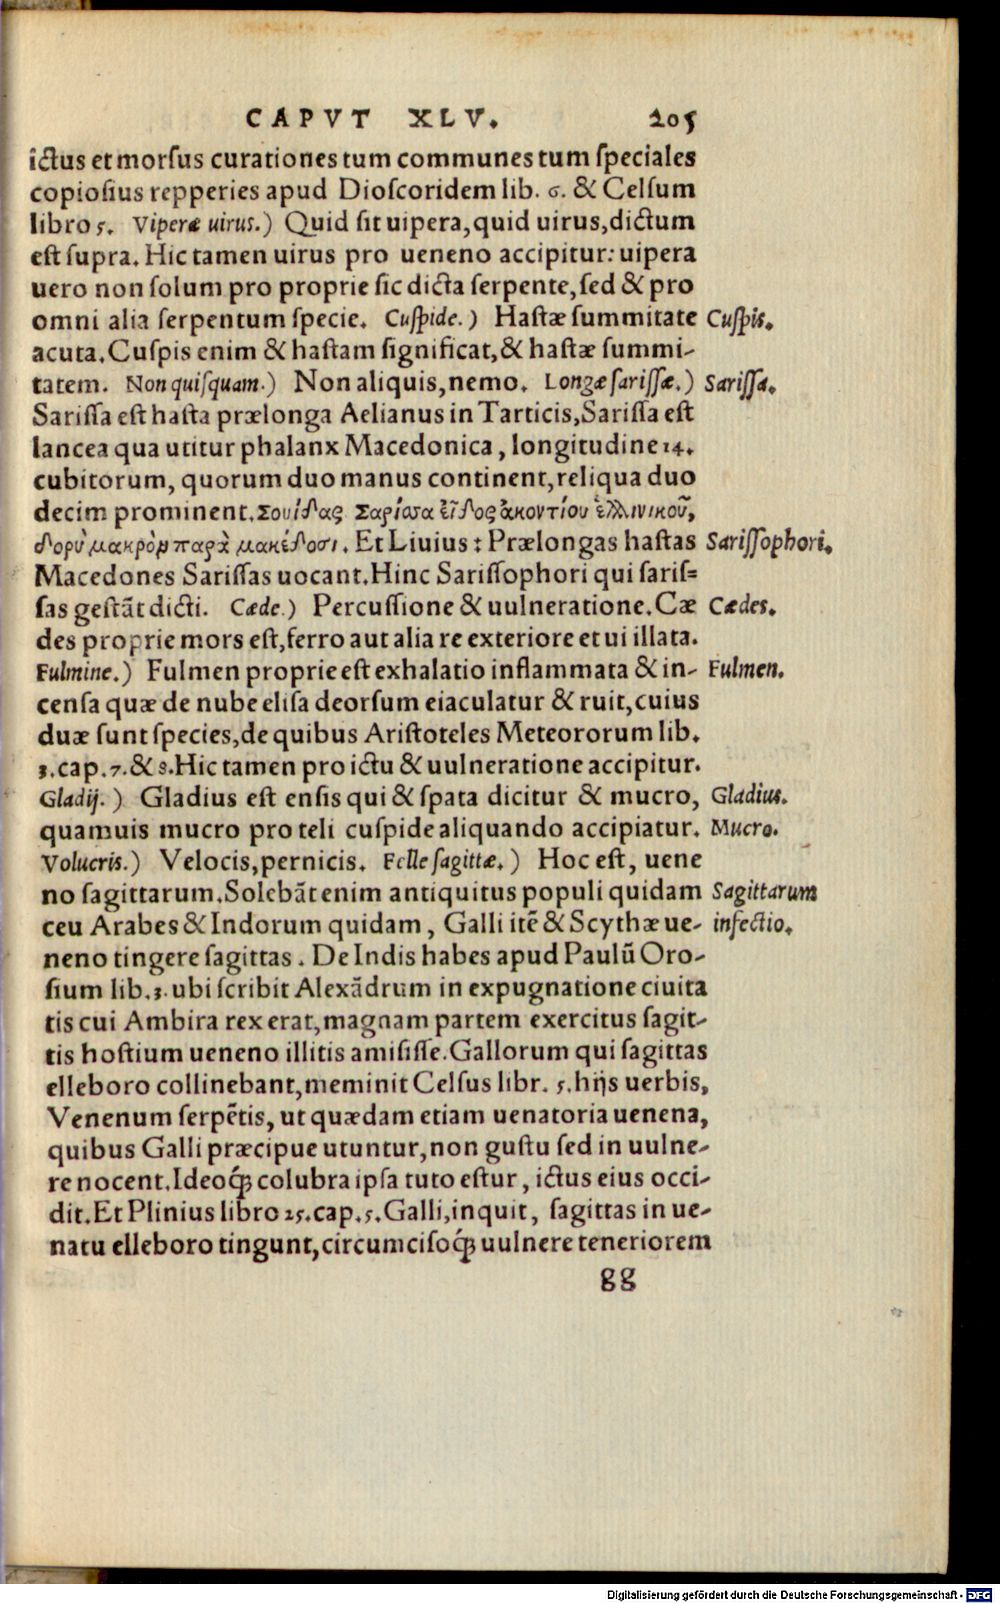 CAPVT XLV. 205
ictus et morſus curationes tum communes tum ſpeciales
copioſius repperies apud Dioſcoridem lib. 6. & Celſum
libro 5. Viperæ uirus.) Quid ſit uipera, quid uirus, dictum
eſt ſupra. Hic tamen uirus pro ueneno accipitur: uipera
uero non ſolum pro proprie ſic dicta ſerpente, ſed & pro
omni alia ſerpentum ſpecie. Cuſpide.) Haſtæ ſummitate Cuſpis.
acuta. Cuſpis enim & haſtam ſignificat, & haſtæ ſummi-
tatem. Non quiſquam.) Non aliquis, nemo. Longæ ſariſſæ.) Sariſſa.
Sariſſa eſt haſta prælonga Aelianus in Tarticis, Sariſſa eſt
lancea qua utitur phalanx Macedonica, longitudine 14.
cubitorum, quorum duo manus continent, reliqua duo
decim prominent. Σουίδας Σαρίσσα εἶδος ἀκοντίου ἑλλινικοῦ,
δορὺ μακρὸν παρὰ μακέδοσι. Et Liuius: Prælongas haſtas Sariſſophori.
Macedones Sariſſas uocant. Hinc Sariſſophori qui ſariſ=
ſas geſtāt dicti. Cæde.) Percuſſione & uulneratione. Cæ Cædes.
des proprie mors eſt, ferro aut alia re exteriore et ui illata.
Fulmine.) Fulmen proprie eſt exhalatio inflammata & in- Fulmen.
cenſa quæ de nube eliſa deorſum eiaculatur & ruit, cuius
duæ ſunt ſpecies, de quibus Ariſtoteles Meteororum lib.
3. cap. 7. & 8. Hic tamen pro ictu & uulneratione accipitur.
Gladij.) Gladius eſt enſis qui & ſpata dicitur & mucro, Gladius.
quamuis mucro pro teli cuſpide aliquando accipiatur. Mucro.
Volucris.) Velocis, pernicis. Felle ſagittæ.) Hoc eſt, uene
no ſagittarum. Solebāt enim antiquitus populi quidam Sagittarum
ceu Arabes & Indorum quidam, Galli itē & Scythæ ue- infectio.
neno tingere ſagittas. De Indis habes apud Paulū Oro-
ſium lib. 3. ubi ſcribit Alexādrum in expugnatione ciuita
tis cui Ambira rex erat, magnam partem exercitus ſagit-
tis hoſtium ueneno illitis amiſiſſe. Gallorum qui ſagittas
elleboro collinebant, meminit Celſus libr. 5. hijs uerbis,
Venenum ſerpētis, ut quædam etiam uenatoria uenena,
quibus Galli præcipue utuntur, non guſtu ſed in uulne-
re nocent. Ideoq́ꝫ colubra ipſa tuto eſtur, ictus eius occi-
dit. Et Plinius libro 25. cap. 5. Galli, inquit, ſagittas in ue-
natu elleboro tingunt, circumciſoq́ꝫ uulnere teneriorem
gg
Digitalisierung gefördert durch die Deutsche Forschungsgemeinschaft - DFG